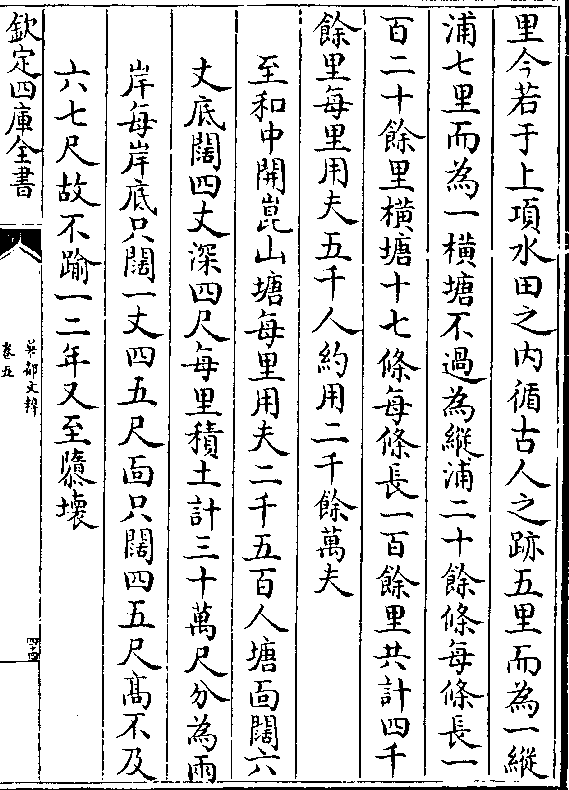 里今若于上項水田之内循古人之跡五里而為一縱
浦七里而為一橫塘不過為縱浦二十餘條每條長一
百二十餘里橫塘十七條每條長一百餘里共計四千
餘里每里用夫五千人約用二千餘萬夫
至和中開崑山塘每里用夫二千五百人塘靣闊六
丈底闊四丈深四尺每里積土計三十萬尺分為兩
岸每岸底只闊一丈四五尺靣只闊四五尺髙不及
六七尺故不踰一二年又至隳壊
欽定四庫全書
吳都文粹
卷五